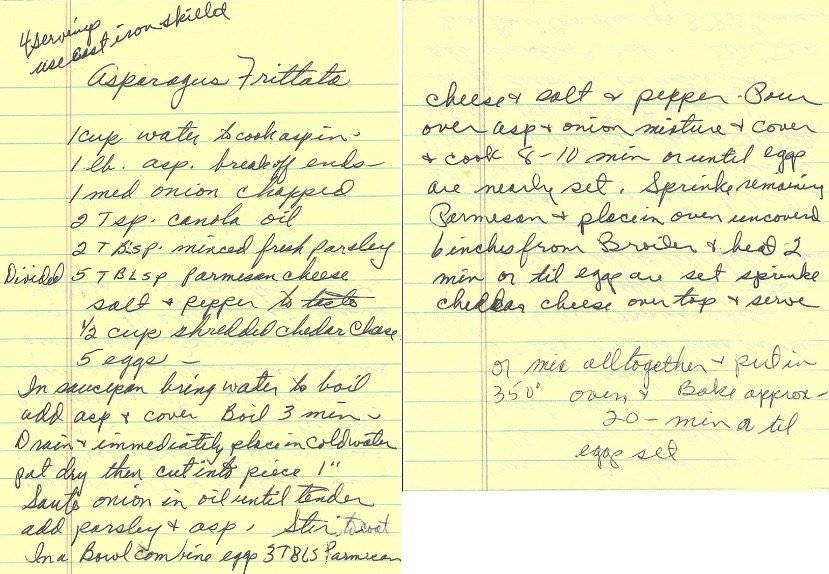 4 servings
use cast iron skilled
Asparagus Frittata
1 cup water to cook asp in -
1 lb. asp. break off ends -
1 med onion chopped
2 Tsp. canola oil
2 TBsp. minced fresh parsley
Divided 5 TBLsp Parmesan cheese
salt + pepper to taste
1/2 cup shredded chedar Chese
5 eggs -
In saucepan bring water to boil
add asp + cover Boil 3 min -
Drain + immediately place in cold water
pat dry then cut into piece 1"
Saute onion in oil until tender
add parsley + asp. Stir to coat
In a Bowl combine eggs 3 TBLS Parmesan
cheese + salt + pepper. Pour
over asp + onion mixture + cover
+ cook 8-10 min or until eggs
are nearly set. Sprinke remaining
Parmesan + place in oven uncoverd
6 inches from Broiler + heat 2
min or til eggs are set sprinke
cheddar cheese over top + serve
or mix all together + put in
350° oven + Bake approx -
20 - min or til
eggs set